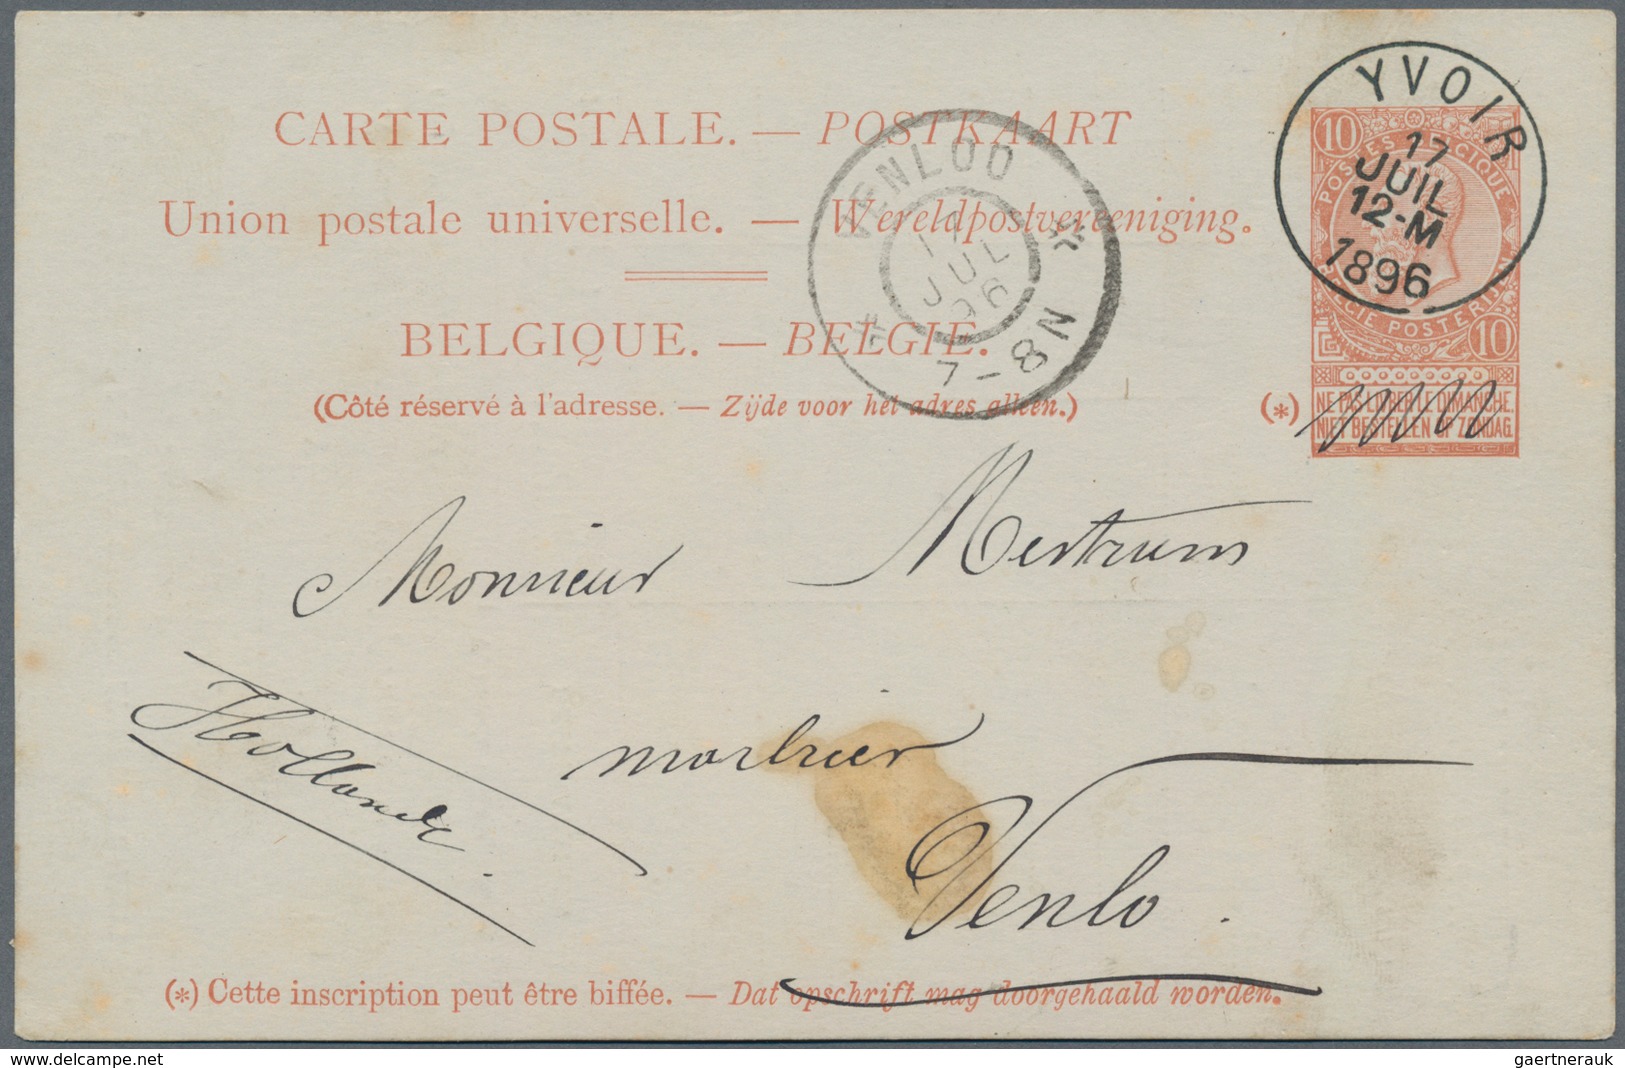 CARTE POSTALE. — POSTKAART
Union postale universelle. — Wereldpostvereeniging.
BELGIQUE. — BELGIE.
(Côté réservé à l'adresse. — Zijde voor het adres alleen.)
VENLOO
JUL
96
7-8N
YVOIR
17
JUIL
12-M
1896
10 10
POSTES BELGIQUE
BELGIE POSTERIJN
10
(*)
NE PAS LIVRER LE DIMANCHE.
NIET BESTELLEN OP ZONDAG.
Monsieur Mertrum
marbrier
Hollande.
Venlo.
(*) Cette inscription peut être biffée. — Dat opschrift mag doorgehaald worden.
gaertnerauk